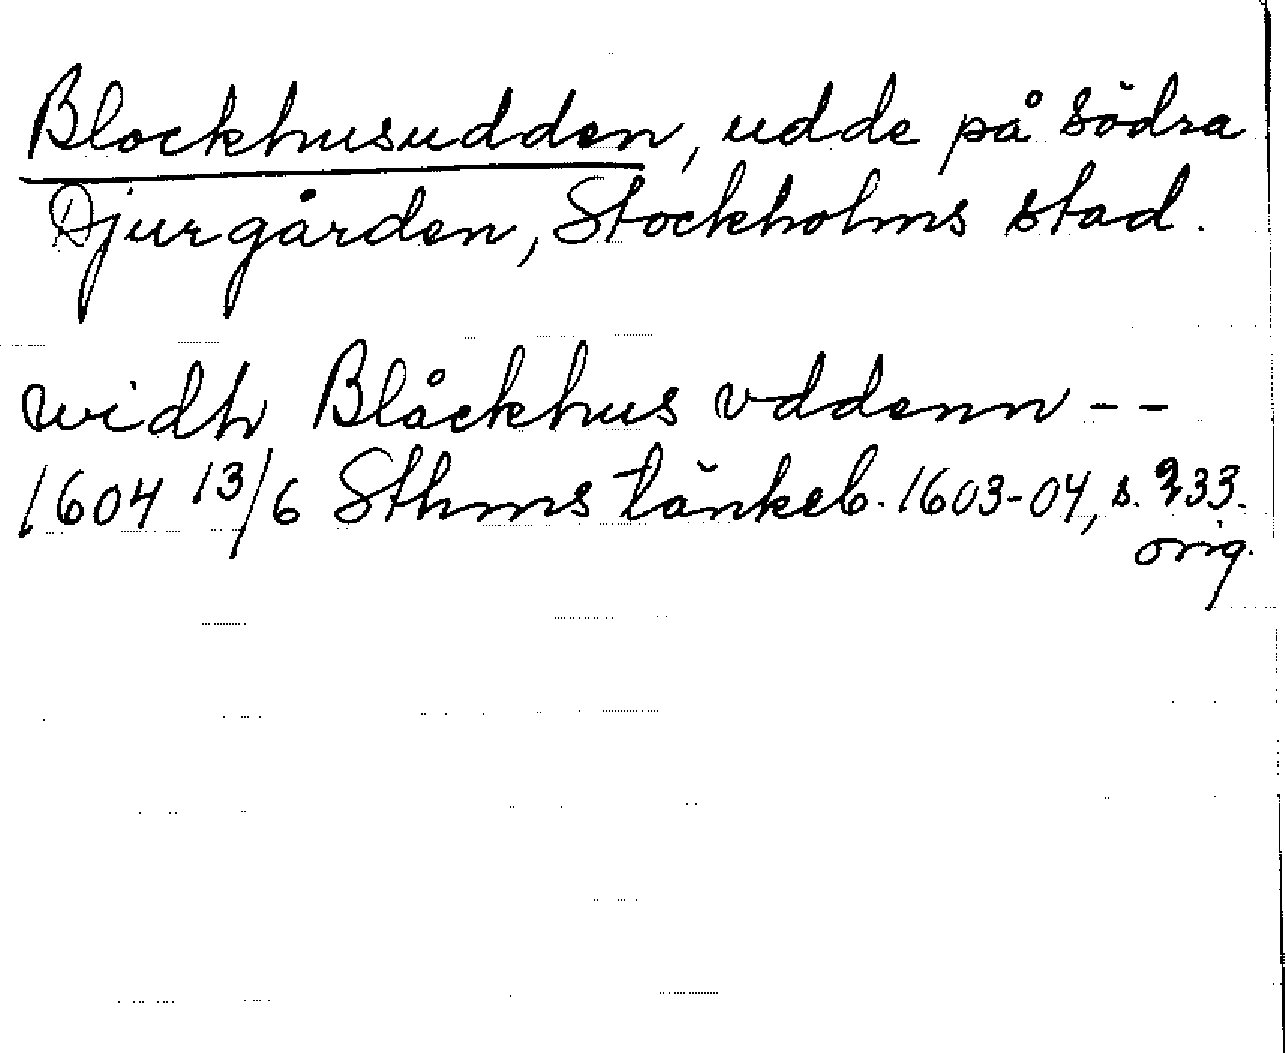 Blockhusudden, udde på södra
Djurgården, Stockholms stad.
widh Blåckhus vddenn --
1604 13/6 Sthms tänkeb. 1603-04, s. 333.
orig.